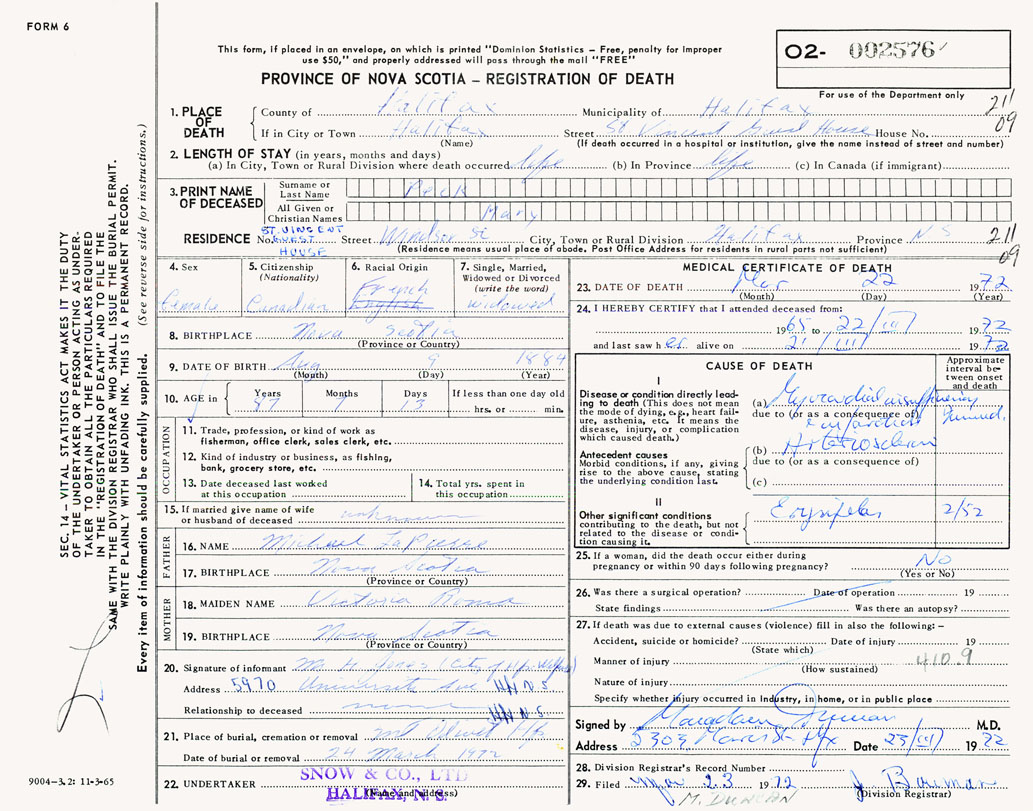 FORM 6
This form, if placed in an envelope, on which is printed "Dominion Statistics – Free, penalty for improper
use $50," and properly addressed will pass through the mail "FREE"
PROVINCE OF NOVA SCOTIA – REGISTRATION OF DEATH
O2- 002576
For use of the Department only
211
09
1. PLACE OF DEATH
County of Halifax Municipality of Halifax
If in City or Town Halifax Street St Vincent Guest House House No.
(Name) (If death occurred in a hospital or institution, give the name instead of street and number)
2. LENGTH OF STAY (in years, months and days)
(a) In City, Town or Rural Division where death occurred life (b) In Province life (c) In Canada (if immigrant)
3. PRINT NAME OF DECEASED
Surname or Last Name Peck
All Given or Christian Names Mary
RESIDENCE No. ST. VINCENT GUEST HOUSE Street Windsor St City, Town or Rural Division Halifax Province N S
211
09
(Residence means usual place of abode. Post Office Address for residents in rural parts not sufficient)
4. Sex
Female
5. Citizenship
(Nationality)
Canadian
6. Racial Origin
French
English
7. Single, Married,
Widowed or Divorced
(write the word)
widowed
8. BIRTHPLACE Nova Scotia
(Province or Country)
9. DATE OF BIRTH Aug 9 1884
(Month) (Day) (Year)
10. AGE in Years Months Days If less than one day old
87 7 13 hrs. or min.
OCCUPATION
11. Trade, profession, or kind of work as
fisherman, office clerk, sales clerk, etc.
12. Kind of industry or business, as fishing,
bank, grocery store, etc.
13. Date deceased last worked
at this occupation
14. Total yrs. spent in
this occupation
15. If married give name of wife
or husband of deceased unknown
FATHER
16. NAME Michael LaPierre
17. BIRTHPLACE Nova Scotia
(Province or Country)
MOTHER
18. MAIDEN NAME Victoria Roma
19. BIRTHPLACE Nova Scotia
(Province or Country)
20. Signature of informant
Address 5970 University Ave Hfx N S
Relationship to deceased none Hfx N S
21. Place of burial, cremation or removal Mt Olivet Hfx
Date of burial or removal 24 March 1972
22. UNDERTAKER SNOW & CO., LTD
HALIFAX, N. S.
(Name and address)
MEDICAL CERTIFICATE OF DEATH
23. DATE OF DEATH Mar 22 1972
(Month) (Day) (Year)
24. I HEREBY CERTIFY that I attended deceased from:
1965 to 22/III 1972
and last saw her alive on 21 III 1972
CAUSE OF DEATH
Approximate interval between onset and death
I
Disease or condition directly leading
to death (This does not mean
the mode of dying, e.g., heart failure,
asthenia, etc. It means the
disease, injury, or complication
which caused death.)
(a) Myocardial insufficiency
due to (or as a consequence of)
infarction
Antecedent causes
Morbid conditions, if any, giving
rise to the above cause, stating
the underlying condition last.
(b)
due to (or as a consequence of)
(c)
II
Other significant conditions
contributing to the death, but not
related to the disease or condition
causing it.
Erysipelas 2/52
25. If a woman, did the death occur either during
pregnancy or within 90 days following pregnancy? No
(Yes or No)
26. Was there a surgical operation? Date of operation 19
State findings Was there an autopsy?
27. If death was due to external causes (violence) fill in also the following: –
Accident, suicide or homicide? Date of injury 19
(State which)
Manner of injury 410.9
(How sustained)
Nature of injury
Specify whether injury occurred in Industry, in home, or in public place
Signed by M.D.
Address 2303 Hfx Date 23/III 1972
28. Division Registrar's Record Number
29. Filed Mar 23 1972
(Division Registrar)
M. DUNCAN
9004–3.2: 11-3-65
SEC. 14 – VITAL STATISTICS ACT MAKES IT THE DUTY
OF THE UNDERTAKER OR PERSON ACTING AS UNDER-
TAKER TO OBTAIN ALL THE PARTICULARS REQUIRED
IN THE "REGISTRATION OF DEATH" AND TO FILE THE
SAME WITH THE DIVISION REGISTRAR WHO SHALL ISSUE THE BURIAL PERMIT.
WRITE PLAINLY WITH UNFADING INK. THIS IS A PERMANENT RECORD.
Every item of information should be carefully supplied. (See reverse side for instructions.)